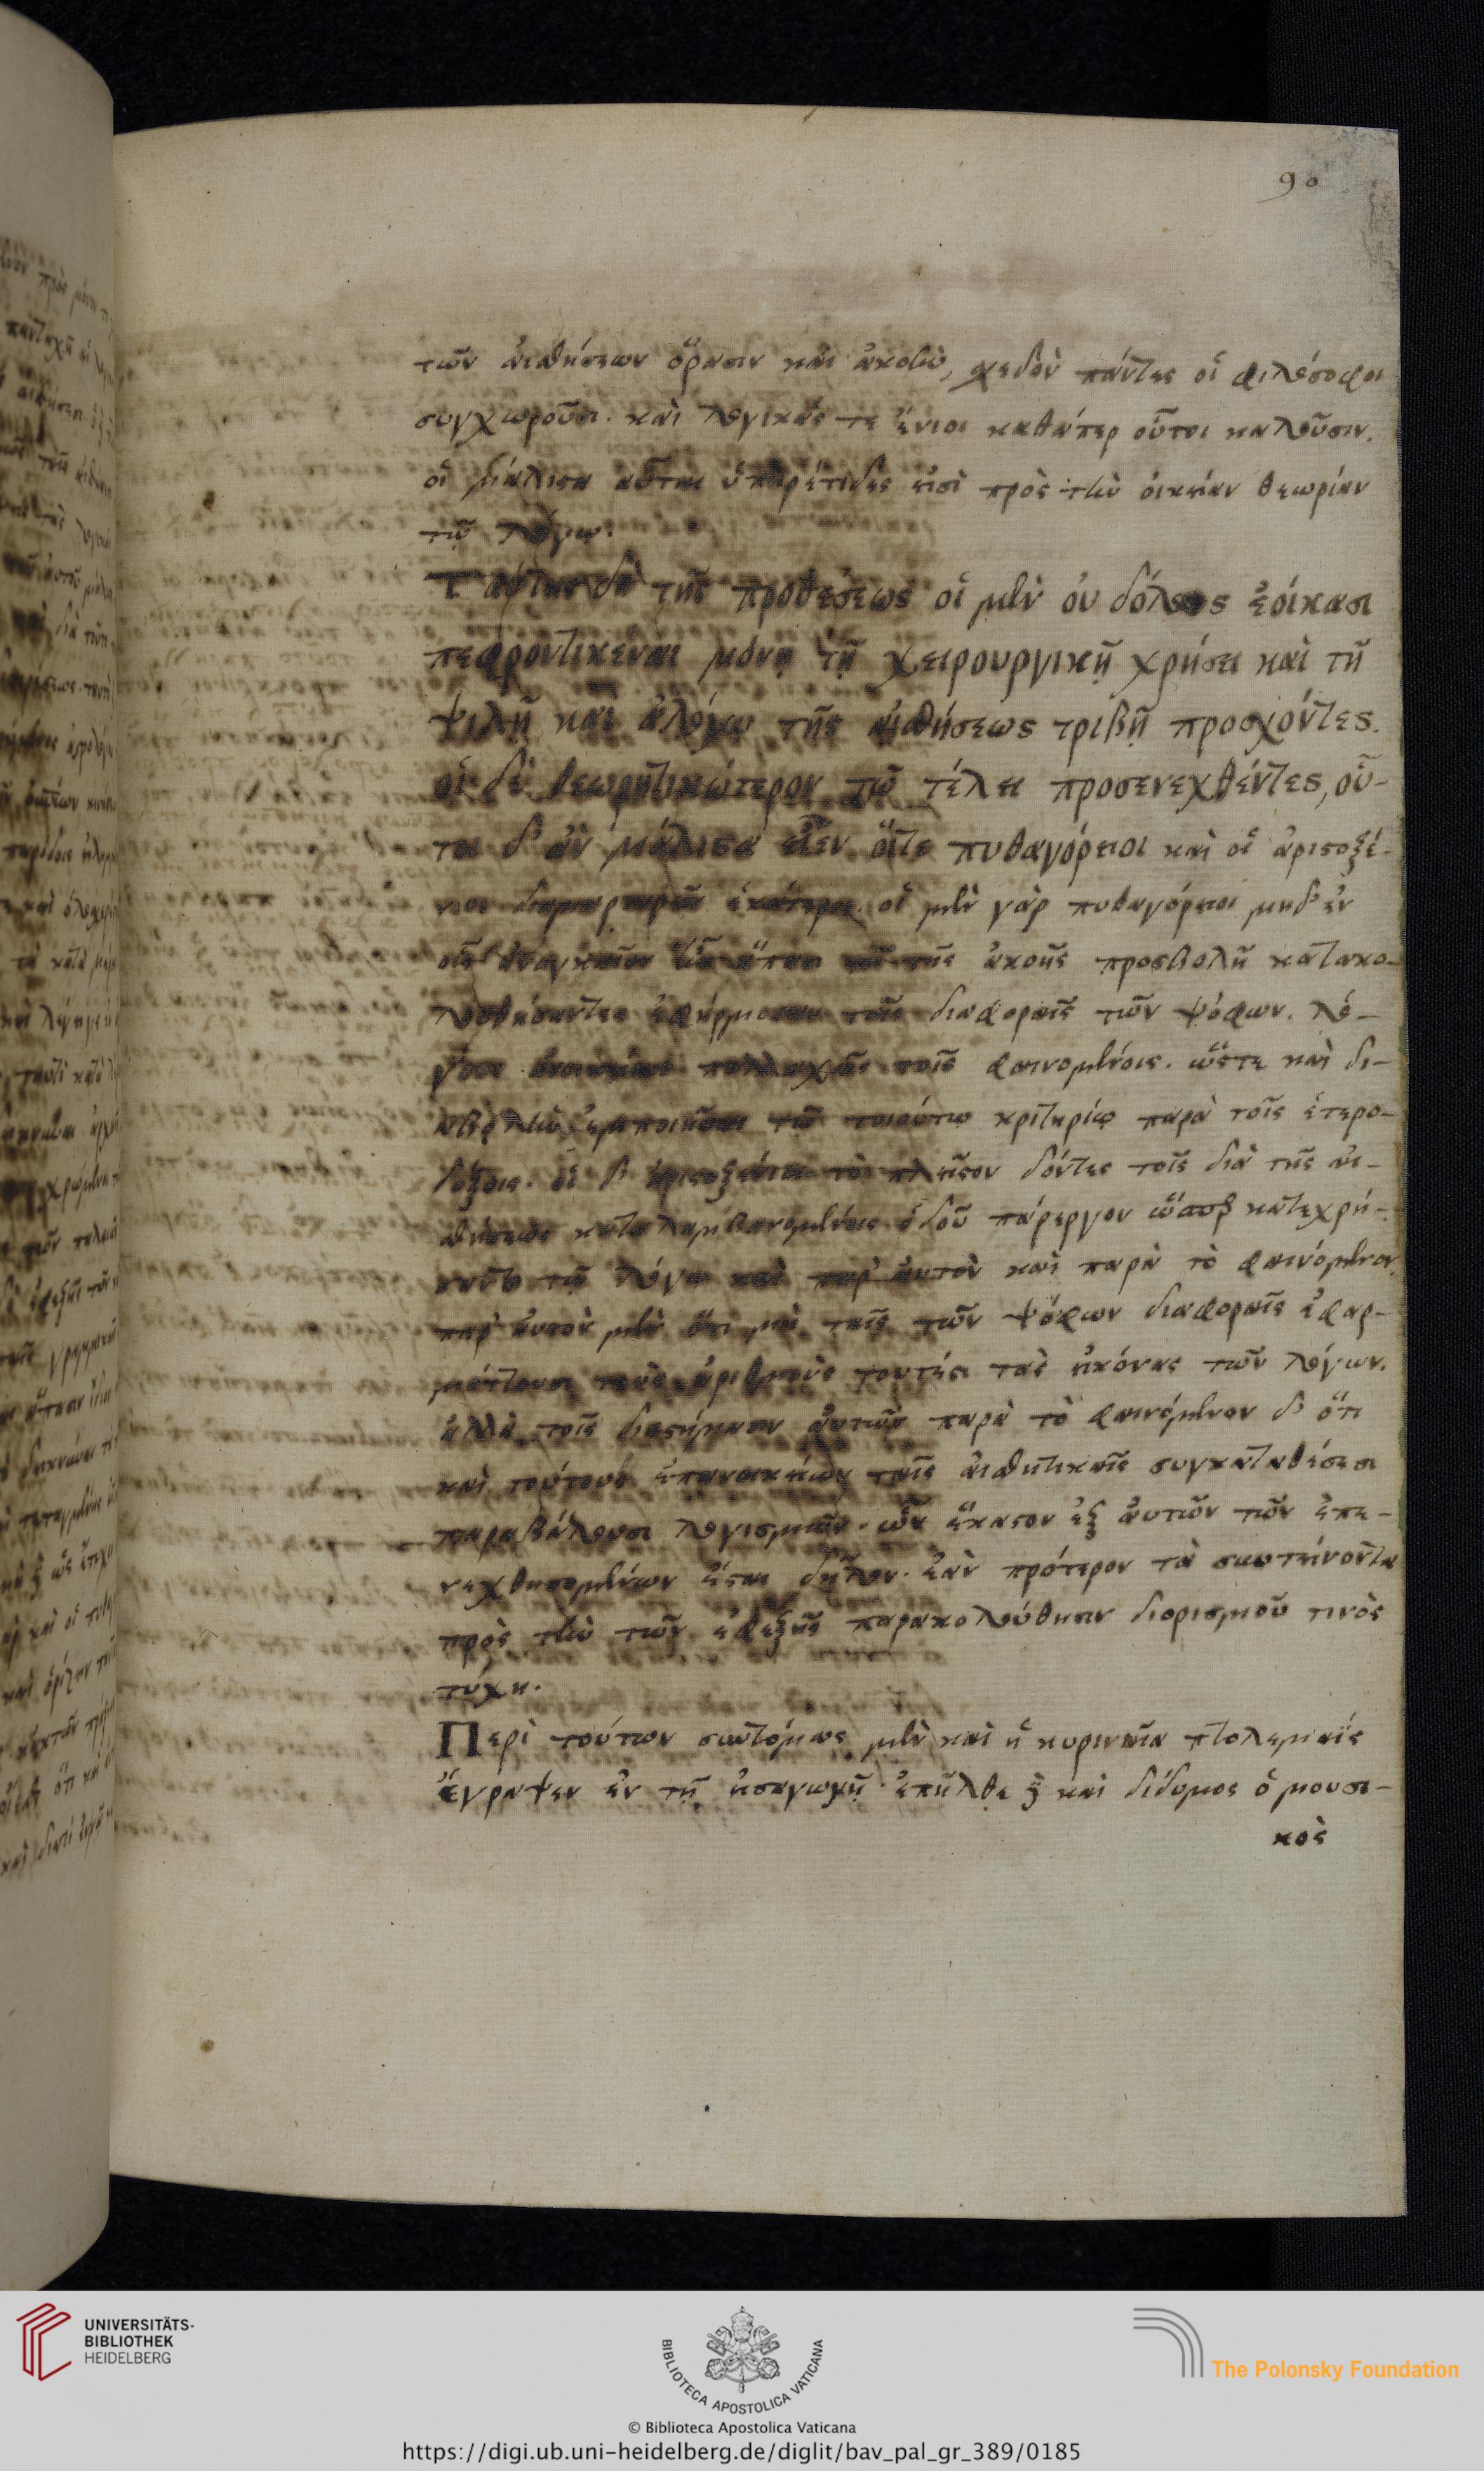 90
τῶν αἰσθήσεων ὅρασιν καὶ ἀκοὴν, σχεδὸν πάντες οἱ φιλόσοφοι
συγχωροῦσι. καὶ λογικάς τε ἔνιοι καθάπερ οὗτοι καλοῦσιν.
οἱ μάλιστα αὗται ὑπηρέτιδες εἰσὶ πρὸς τὴν οἰκείαν θεωρίαν
τῷ λόγῳ.
Ταύτης δὴ τῆς προθέσεως οἱ μὲν οὐδόλως ἐοίκασι
πεφροντικέναι μόνῃ τῇ χειρουργικῇ χρήσει καὶ τῇ
ψιλῇ καὶ ἀλόγῳ τῆς αἰσθήσεως τριβῇ προσχόντες.
οἱ δὲ θεωρητικώτερον τῷ τέλει προσενεχθέντες, οὗ-
τοι δ' ἂν μάλιστα εἶεν οἵτε πυθαγόρειοι καὶ οἱ ἀριστοξέ-
νιοι διαμαρτεῖν ἑκάτεροι. οἱ μὲν γὰρ πυθαγόρειοι μηδ' ἐν
οἷς ἀναγκαῖον ἦν ἅπασι τῇ τῆς ἀκοῆς προσβολῇ κατακο-
λουθήσαντες ἐφήρμοσαν τοῖς διαφοραῖς τῶν ψόφων. λό-
γους ἀνοικείους πολλαχῇ τοῖς φαινομένοις. ὥστε καὶ δι-
αβολὴν ἐμποιῆσαι τῷ τοιούτῳ κριτηρίῳ παρὰ τοῖς ἑτερο-
δόξοις. οἱ δ' ἀριστοξένιοι τὸ πλεῖστον δόντες τοῖς διὰ τῆς αἰ-
σθήσεως καταλαμβανομένοις ὁδοῦ πάρεργον ὥσπερ κατεχρή-
σαντο τῷ λόγῳ καὶ παρ' αὐτὸν καὶ παρὰ τὸ φαινόμενον.
παρ' αὐτὸν μὲν ὅτι μὴ ταῖς τῶν ψόφων διαφοραῖς ἐφαρ-
μόττουσι τοὺς ἀριθμοὺς τουτέστι τὰς εἰκόνας τῶν λόγων.
ἀλλὰ τοῖς διαστήμασιν αὐτῶν παρὰ τὸ φαινόμενον δ' ὅτι
καὶ τούτους ἐπανοικείων ταῖς αἰσθητικαῖς συγκαταθέσεσι
παραβάλουσι λογισμῶν. ὧν ἕκαστον ἐξ αὐτῶν τῶν ἐπε-
νεχθησομένων ἔσται δῆλον. ἐὰν πρότερον τὰ συντείνοντα
πρὸς τὴν τῶν ἐφεξῆς παρακολούθησιν διορισμοῦ τινὸς
τύχῃ.
Περὶ τούτων συντόμως μὲν καὶ ἡ κυρηναῖα πτολεμαῒς
ἔγραψεν ἐν τῇ εἰσαγωγῇ. ἐπῆλθε δὲ καὶ δίδυμος ὁ μουσι-
κὸς
UNIVERSITÄTS-
BIBLIOTHEK
HEIDELBERG
BIBLIOTECA APOSTOLICA VATICANA
The Polonsky Foundation
© Biblioteca Apostolica Vaticana
https://digi.ub.uni-heidelberg.de/diglit/bav_pal_gr_389/0185